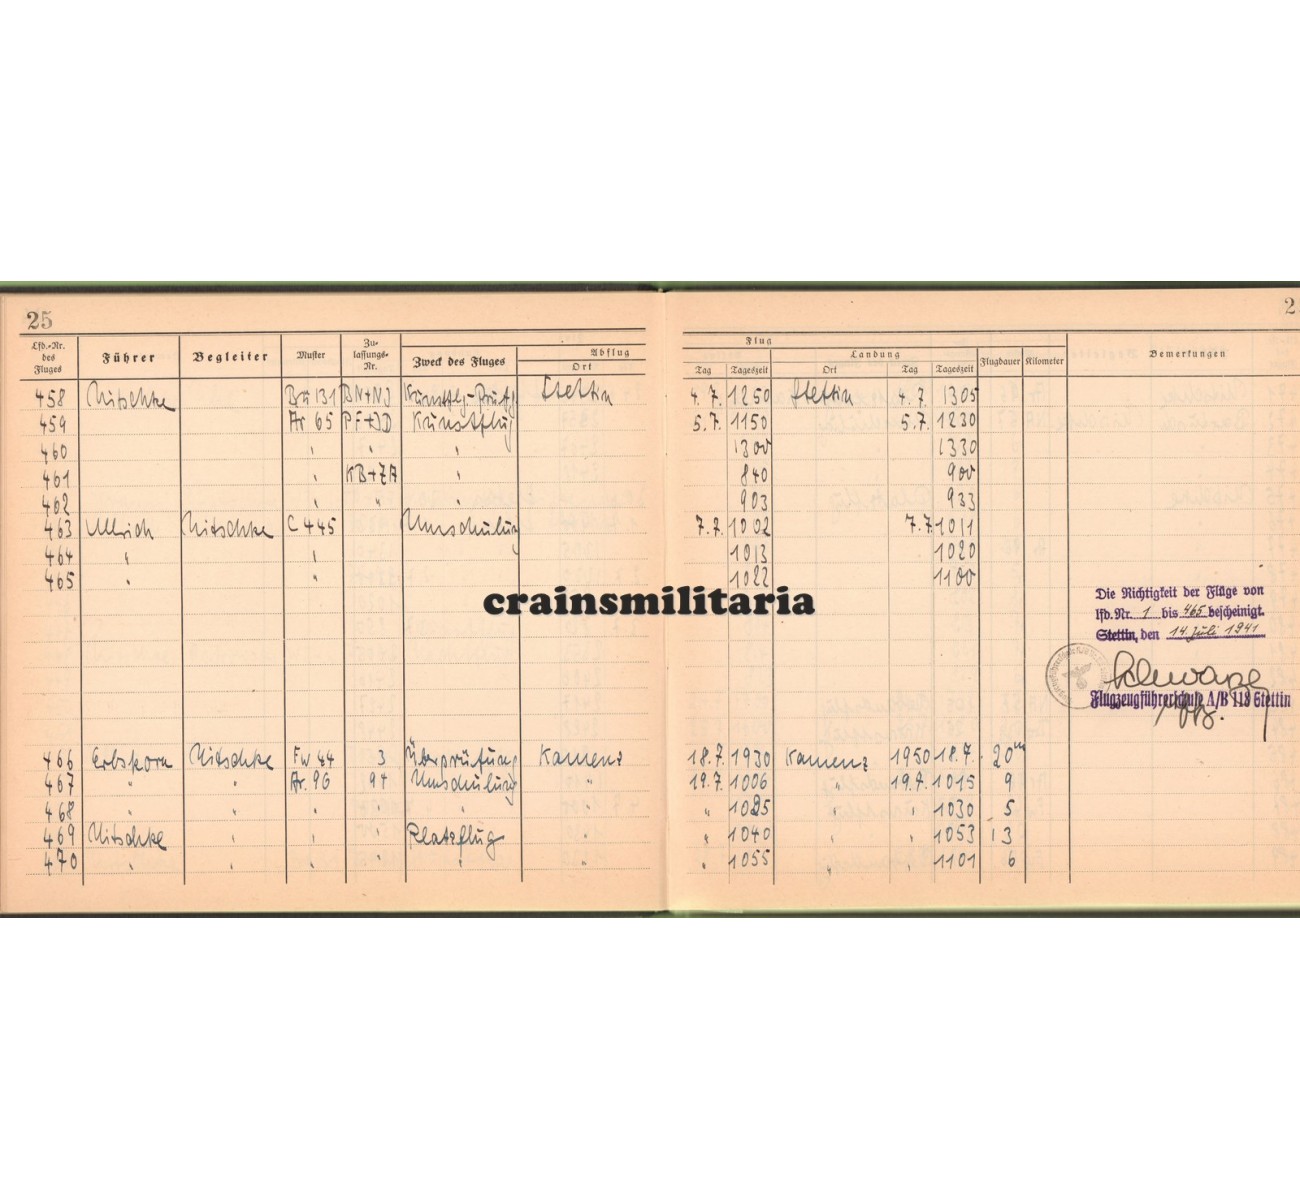 25 2
Lfd.-Nr. des Fluges Führer Begleiter Muster Zulassungs-Nr. Zweck des Fluges Abflug Ort Flug Tag Tageszeit Landung Ort Tag Tageszeit Flugdauer Kilometer Bemerkungen
458 Nitschke Bü 131 BN+NJ Kunstflg.-Prüfg. Stettin 4.7. 1250 Stettin 4.7. 1305
459 Ar 65 PF+JD Kunstflug 5.7. 1150 5.7. 1230
460 " " " 1300 1330
461 " KB+ZA " 840 900
462 " " " 903 933
463 Ullrich Nitschke C 445 Umschulung 7.7. 1002 7.7. 1011
464 " " 1013 1020
465 " " 1022 1100
crainsmilitaria
Die Richtigkeit der Flüge von
lfd. Nr. 1 bis 465 bescheinigt.
Stettin, den 14. Juli 1941
Flugzeugführerschule A/B 113 Stettin
466 Erbskorn Nitschke Fw 44 3 Überprüfung Kamenz 18.7. 1930 Kamenz 1950 18.7. 20m
467 " " Ar. 96 94 Umschulung " 19.7. 1006 " 19.7. 1015 9
468 " " " " " " " 1025 " " 1030 5
469 Nitschke " " " Platzflug " " 1040 " " 1053 13
470 " " " " " " " 1055 " " 1101 6